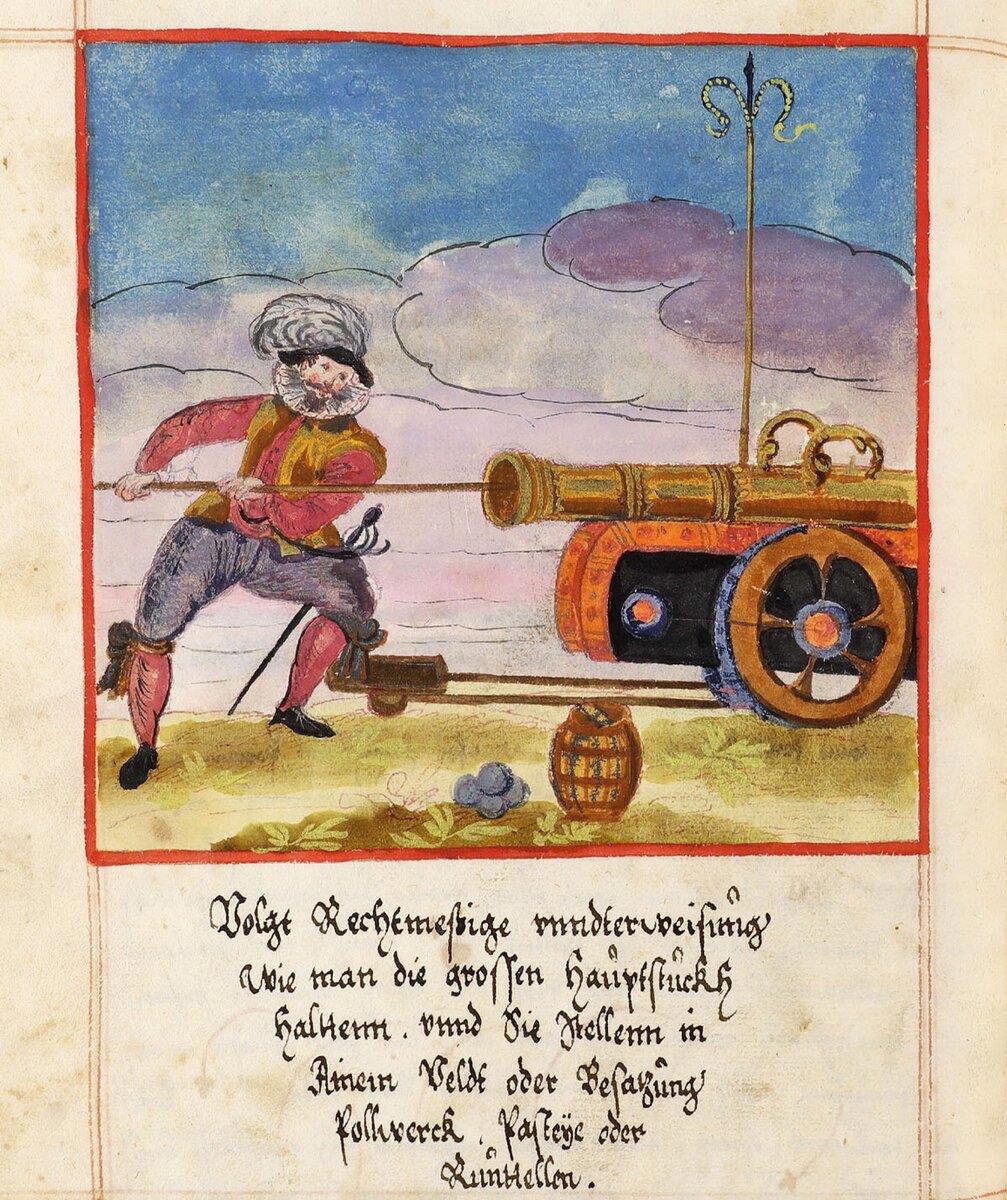 Volgt Rechtmeßige vnndterweisung
Wie man die grossen Hauptstückh
Halltenn. vnnd Sie Stellenn in
Ainem Veldt oder Besatzung
Pollwerck. Pasteÿe oder
Runttellen.